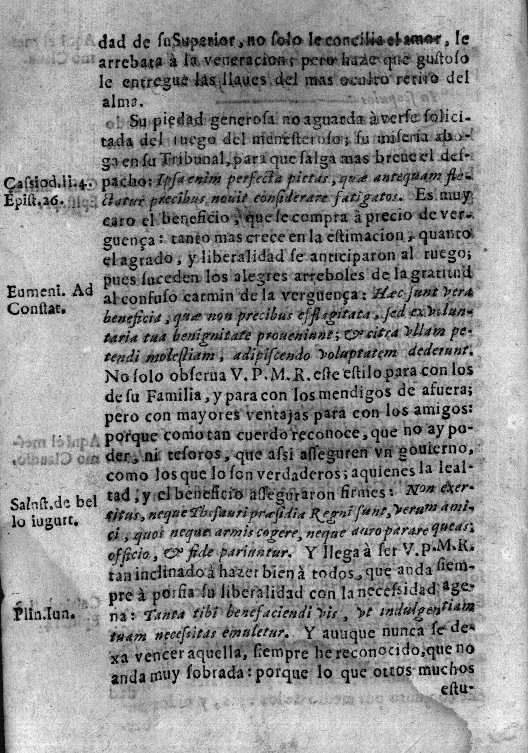 dad de suSuperior, no solo le concilia el amor, le
arrebata à la veneracion; pero haze que gustoso
le entregue las llaues del mas oculto retiro del
alma.
Su piedad generosa no aguarda à verse solici-
tada del ruego del menesteroso; su miseria abo-
ga en su Tribunal, para que salga mas breue el des-
Cassiod. li. 4.
Epist. 26.
pacho: Ipsa enim perfecta pietas, quæ antequam fle-
ctatur precibus, novit considerare fatigatos. Es muy
caro el beneficio, que se compra à precio de ver-
guença: tanto mas crece en la estimacion, quanto
el agrado, y liberalidad se anticiparon al ruego;
pues suceden los alegres arreboles de la gratitud
Eumeni. Ad
Constat.
al confuso carmin de la verguença: Hæc sunt vera
beneficia, quæ non precibus efflagitata, sed ex volun-
taria tua benignitate proueniunt; & citra vllam pe-
tendi molestiam, adipiscendo voluptatem dederunt.
No solo obserua V. P. M. R. este estilo para con los
de su Familia, y para con los mendigos de afuera;
pero con mayores ventajas para con los amigos:
porque como tan cuerdo reconoce, que no ay po-
der, ni tesoros, que assi asseguren vn gouierno,
como los que lo son verdaderos; aquienes la leal-
Salust. de bel
lo iugurt.
tad, y el beneficio asseguraron firmes: Non exer-
citus, neque Thesauri præsidia Regni sunt, verum ami-
ci, quos neque armis cogere, neque auro parare queas,
officio, & fide pariuntur. Y llega à ser V. P. M. R.
tan inclinado à hazer bien à todos, que anda siem-
pre à porfia su liberalidad con la necessidad age-
Plin. Iun.
na: Tanta tibi benefaciendi vis, vt indulgentiam
tuam necessitas emuletur. Y aunque nunca se de-
xa vencer aquella, siempre he reconocido, que no
anda muy sobrada: porque lo que otros muchos
estu-